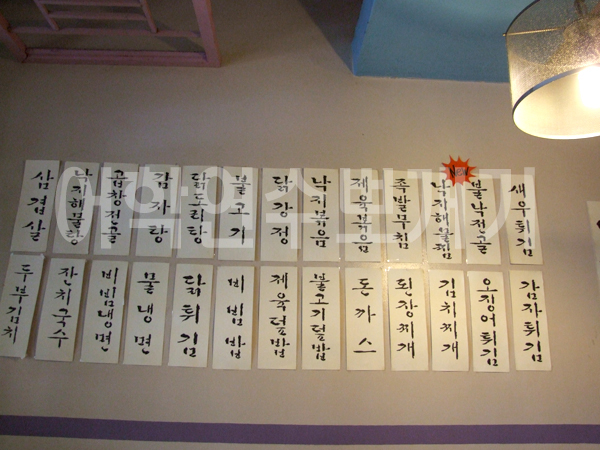 삼겹살
낙지해물탕
곱창전골
감자탕
닭도리탕
불고기
닭강정
낙지볶음
제육볶음
족발무침
낙지해물찜
불낙전골
새우튀김
두부김치
잔치국수
비빔냉면
물냉면
닭튀김
비빔밥
제육덮밥
불고기덮밥
돈까스
된장찌개
김치찌개
오징어튀김
감자튀김
어학연수보개기